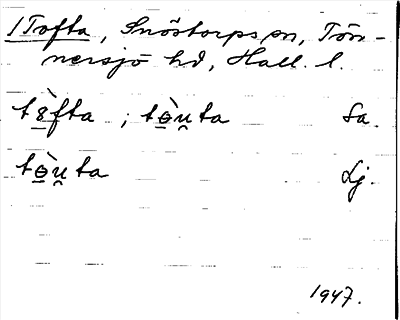 1 Tofta, Snöstorps sn, Tön-
nersjö hd, Hall. l.
tò̠fta ; tò̠u̯ta Sa.
tò̠u̯ta Lj.
1947.